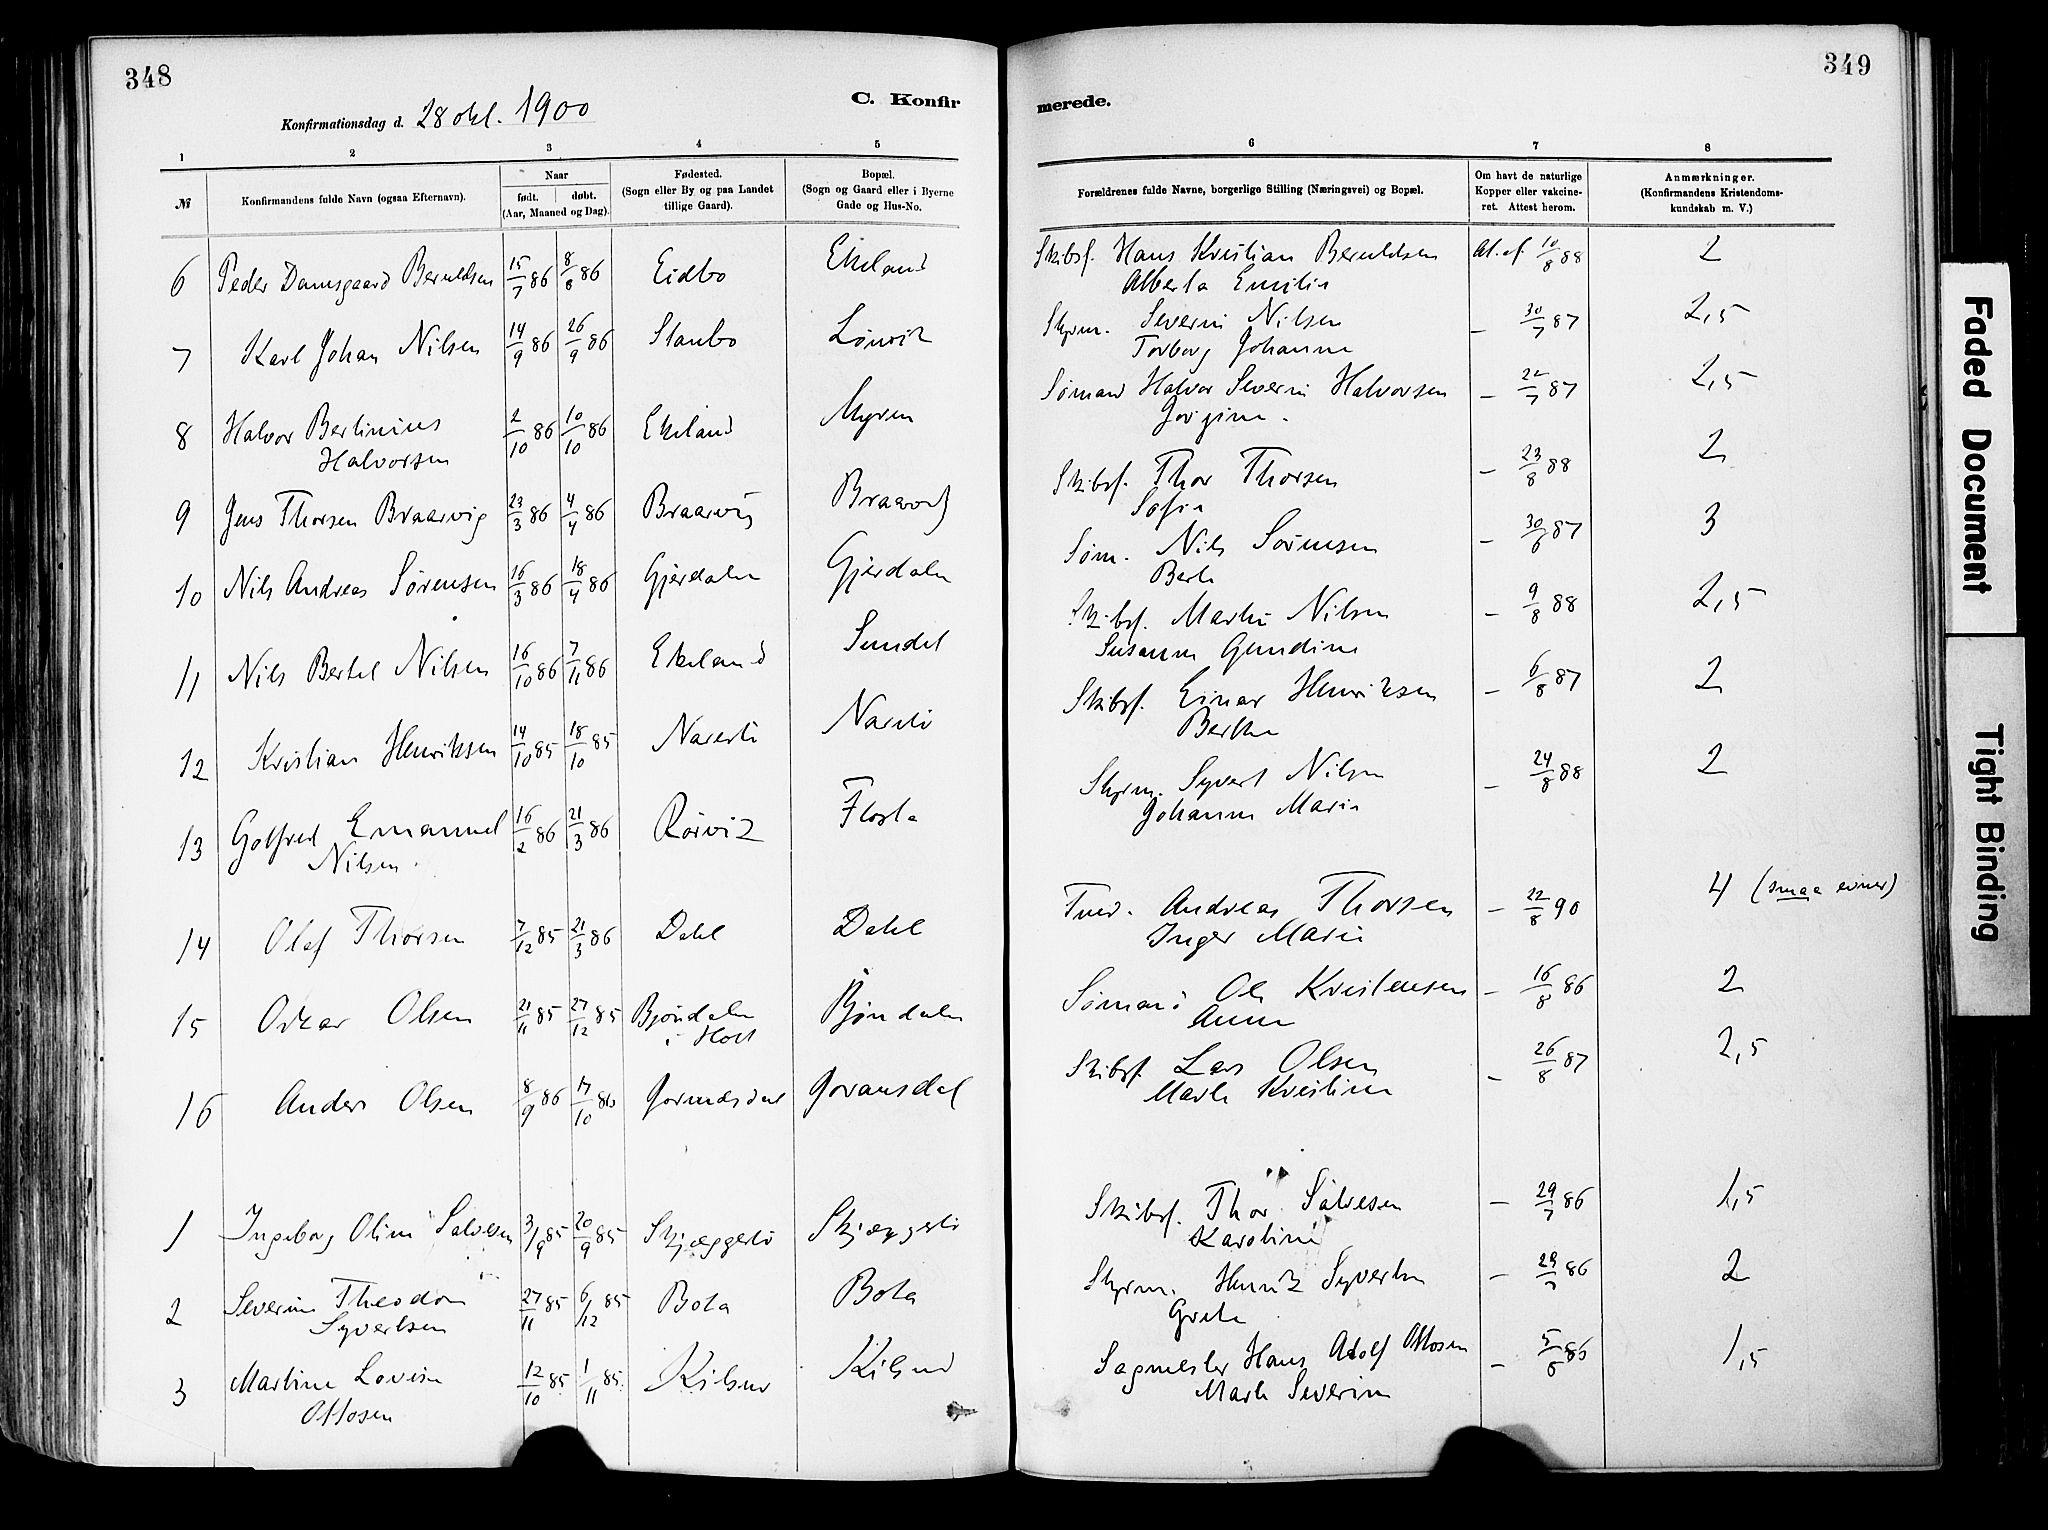 348
C. Konfir
Konfirmationsdag d. 28 okt. 1900
1 2 3 4 5
№ Konfirmandens fulde Navn (ogsaa Efternavn). Naar født. døbt. (Aar, Maaned og Dag). Fødested. (Sogn eller By og paa Landet tillige Gaard). Bopæl. (Sogn og Gaard eller i Byerne Gade og Hus-No.
6 Peder Damsgaard Beruldsen 15/7 86 8/8 86 Eidbo Ekeland
7 Karl Johan Nilsen 14/9 86 26/9 86 Staubo
8 Halvor Bertinius 2/10 86 10/10 86 Ekeland Myren
Halvorsen
9 Jens Thorsen Braarvig 23/3 86 4/4 86 Braarvig
10 Nils Andreas Sörensen 16/3 86 18/4 86 Gjerdalen Gjerdalen
11 Nils Bertel Nilsen 16/10 86 7/11 86 Ekeland Sundet
12 Kristian Henriksen 14/10 85 18/10 85
13 Gotfred Emanuel 16/2 86 21/3 86 Rörvik Flosta
Nilsen
14 Olaf Thorsen 7/12 85 21/3 86 Dahl Dahl
15 Oskar Olsen 21/11 85 27/12 85 Bjöndalen Bjöndalen
i Holt
16 Anders Olsen 8/9 86 17/10 86 Goransdal
1 Ingeborg Oline Salvesen 3/9 85 20/9 85 Skjæggestö Skjæggestö
2 Severine Theodora 27/11 85 6/12 85 Bota Bota
Syvertsen
3 Martine Lovise 12/10 85 1/11 85 Kilsund Kilsund
Ottosen
349
merede.
6 7 8
Forældrenes fulde Navne, borgerlige Stilling (Næringsvei) og Bopæl. Om havt de naturlige Kopper eller vakcineret. Attest herom. Anmærkninger. (Konfirmandens Kristendomskundskab m. V.)
Skibsf. Hans Kristian Beruldsen At. af 10/8 88 2
Alberta Emilie
Styrm. Severin Nilsen – 30/7 87 2,5
Torborg Johanne
Sömand Halvor Severin Halvorsen – 22/7 87 2,5
Jorgine.
Skibsf. Thor Thorsen – 23/8 88 2
Sofie
Söm. Nils Sörensen – 87 3
Berte
Skibsf. Martin Nilsen – 9/8 88 2,5
Susanne Gundine
Skibsf. Einar Henriksen – 6/8 87 2
Berthe
Styrm. Syvert Nilsen – 24/8 88 2
Johanne Marie
Andreas Thorsen – 22/8 90 4 (smaa evner)
Inger Marie
Sömand Ole Kristensen – 16/8 86 2
Anne
Skibsf. Lars Olsen – 26/8 87 2,5
Marte Kristine
Skibsf. Thor Salvesen – 29/7 86 1,5
Karoline
Styrm. Henrik Syvertsen – 29/7 86 2
Grete
Sagmester Hans Adolf Ottosen – 1,5
Marte Severine
Faded Document
Tight Binding